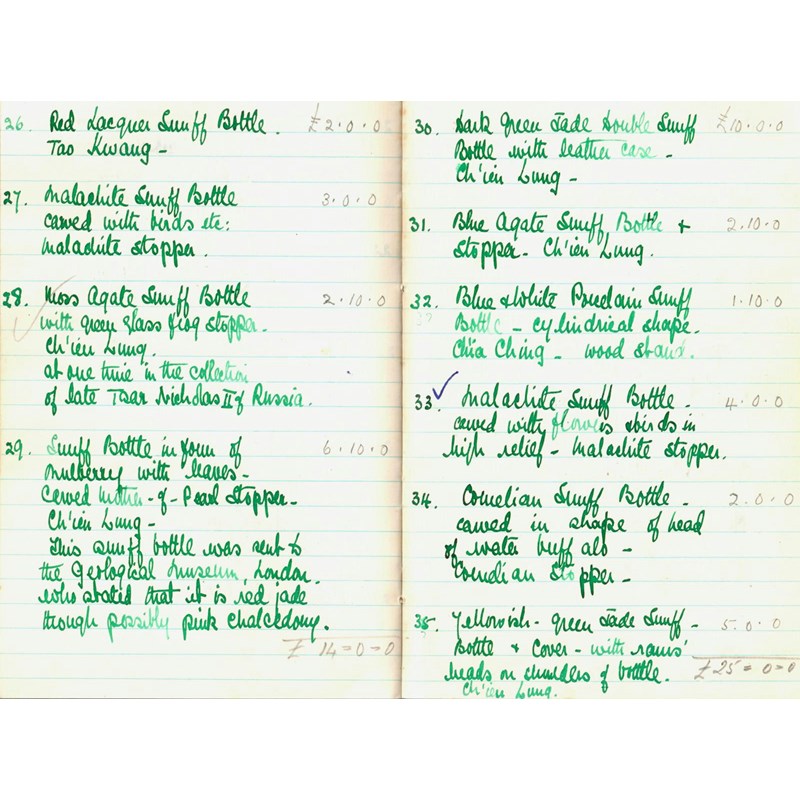 26. Red Lacquer Snuff Bottle. £2.0.0
Tao Kwang -
27. Malachite Snuff Bottle 3.0.0
carved with birds etc:
malachite stopper.
28. Moss Agate Snuff Bottle 2.10.0
with green glass frog stopper.
Ch'ien Lung.
at one time in the collection
of late Tsar Nicholas II of Russia.
29. Snuff Bottle in form of 6.10.0
mulberry with leaves -
Carved Mother-of-Pearl Stopper -
Ch'ien Lung -
This snuff bottle was sent to
the Geological Museum, London.
who stated that it is red jade
though possibly pink chalcedony.
£14=0=0
30. Dark Green Jade Double Snuff £10.0.0
Bottle with leather case -
Ch'ien Lung -
31. Blue Agate Snuff Bottle + 2.10.0
Stopper - Ch'ien Lung.
32. Blue & White Porcelain Snuff 1.10.0
Bottle - cylindrical shape.
Chia Ching - wood stand.
33. Malachite Snuff Bottle - 4.0.0
carved with flowers & birds in
high relief - Malachite stopper.
34. Cornelian Snuff Bottle - 2.0.0
carved in shape of head
of water buffalo -
Cornelian Stopper -
35. Yellowish-green Jade Snuff - 5.0.0
Bottle + Cover - with rams'
heads on shoulders of bottle.
Ch'ien Lung.
£25=0=0